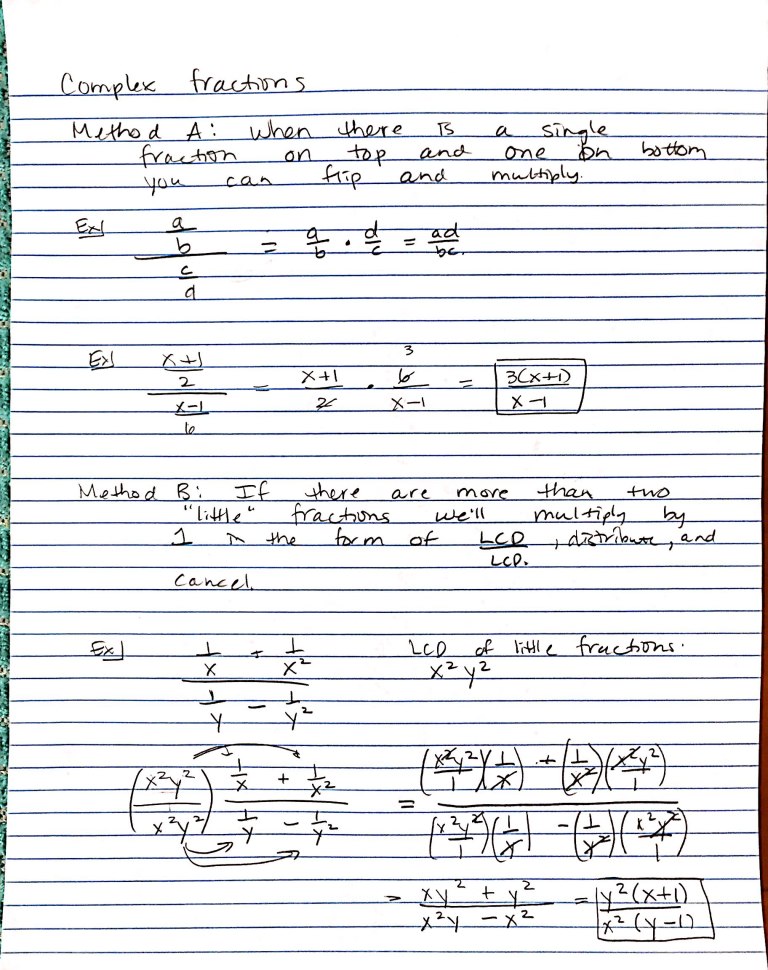 Complex fractions
Method A: When there is a single
fraction on top and one on bottom
you can flip and multiply.
Ex] (a/b)/(c/d) = a/b · d/c = ad/bc.
Ex] ((x+1)/2)/((x-1)/6) = (x+1)/2 · 6/(x-1) 3 = 3(x+1)/(x-1)
Method B: If there are more than two
"little" fractions we'll multiply by
1 in the form of LCD/LCD. , distribute, and
cancel.
Ex] (1/x + 1/x²)/(1/y - 1/y²) LCD of little fractions.
x²y²
(x²y²/x²y²) (1/x + 1/x²)/(1/y - 1/y²) = ((x²y²/1)(1/x) + (1/x²)(x²y²/1))/((x²y²/1)(1/y) - (1/y²)(x²y²/1))
= (xy² + y²)/(x²y - x²) = y²(x+1)/x²(y-1)